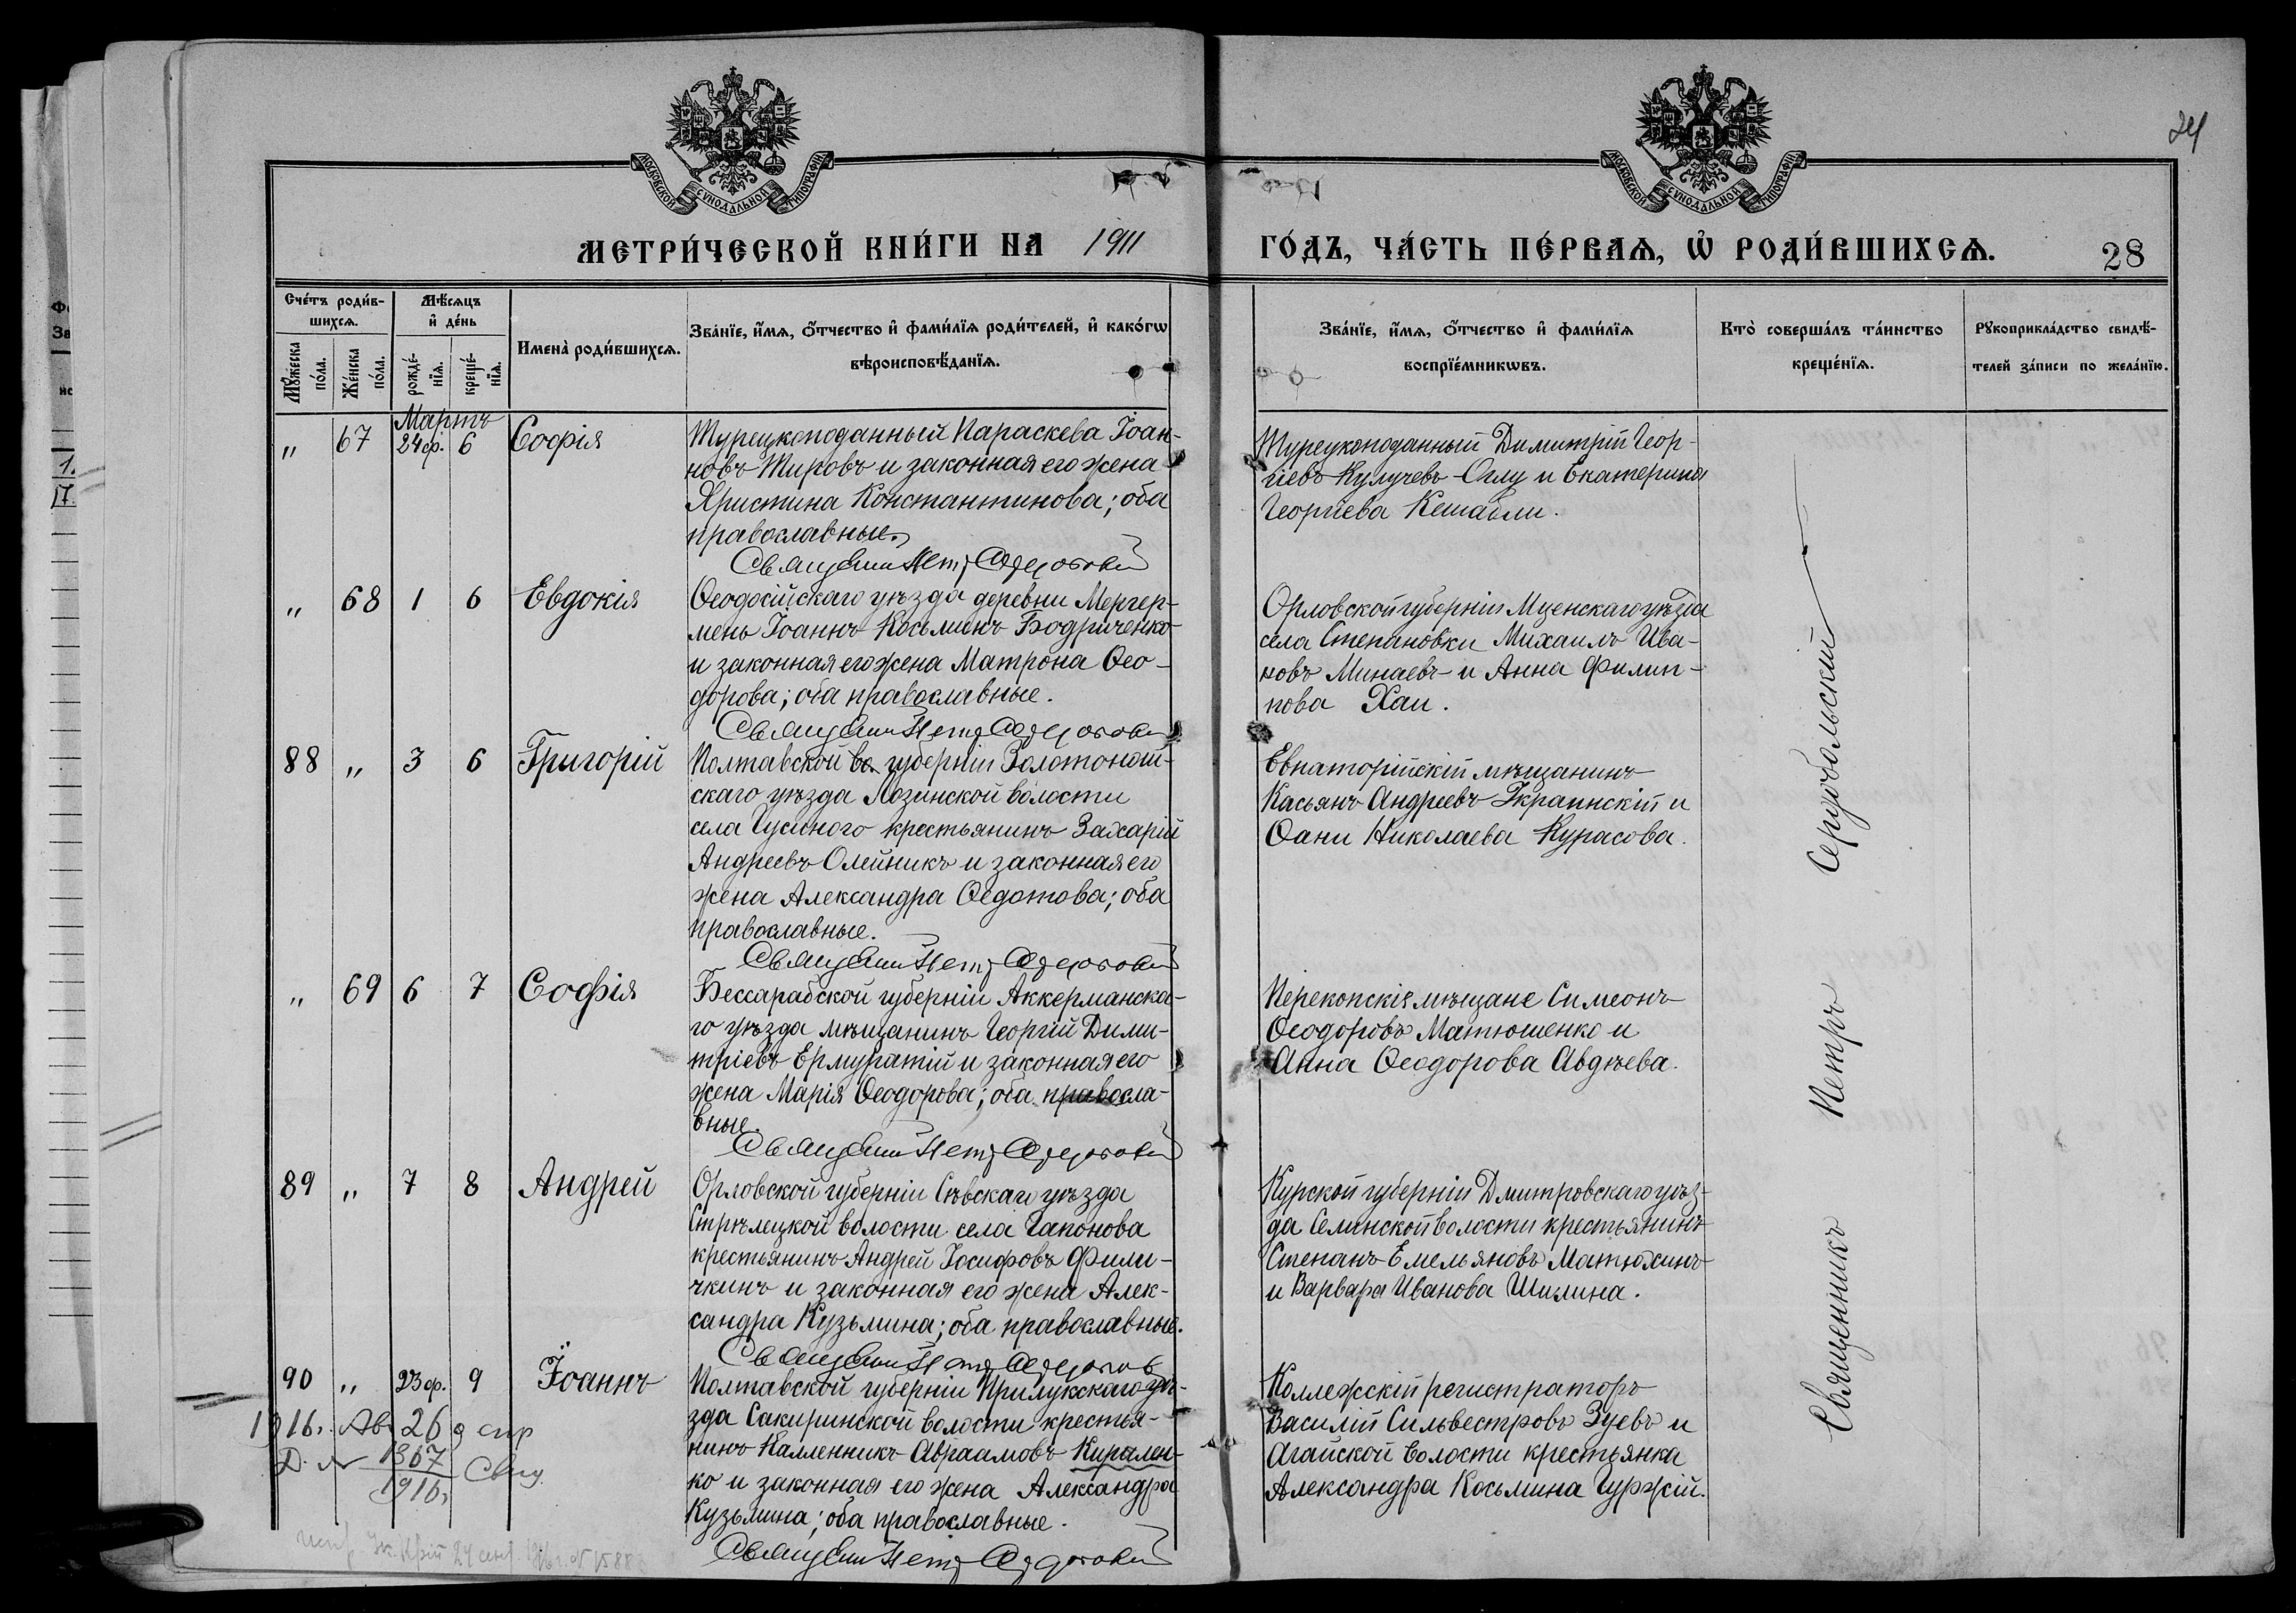 МОСКОВСКОЙ СѴНОДАЛЬНОЙ ТИПОГРАФІИ
МОСКОВСКОЙ СѴНОДАЛЬНОЙ ТИПОГРАФІИ
МЕТРИ́ЧЕСКОЙ КНИ́ГИ НА 1911
ГО́ДЪ, ЧА́СТЬ ПЕ́РВАѦ, Ѡ҆ РОДИ́ВШИХСѦ.
28
Сче́тъ роди́в-
шихсѧ.
Мꙋ́жеска по́ла.
Же́нска по́ла.
Мѣ́сѧцъ
и҆ де́нь
рожде́-
нїѧ.
креще́-
нїѧ.
Имена̀ роди́вшихсѧ.
Зва́нїе, и҆́мѧ, ѻ҆́тчество и҆ фами́лїѧ роди́телей, и҆ како́гѡ
вѣроисповѣ́данїѧ.
Зва́нїе, и҆́мѧ, ѻ҆́тчество и҆ фами́лїѧ
воспрїе́мникѡвъ.
Кто̀ соверша́лъ та́инство
креще́нїѧ.
Рꙋкоприкла́дство свидѣ́-
телей за́писи по жела́нїю.
Мартъ
„ 67 24 ф. 6 Софія
Турецкоподанный Параскева Іоан-
новъ Тировъ и законная его жена
Христина Константинова; оба
православные.
Турецкоподанный Димитрій Геор-
гіевъ Кулучевъ-Оглу и Екатерина
Георгіева Кешабли.
„ 68 1 6 Евдокія
Ѳеодосійскаго уѣзда деревни Мергер-
мень Іоаннъ Косьминъ Бодриченко
и законная его жена Матрона Ѳео-
дорова; оба православные.
Орловской губерніи Мценскаго уѣзда
села Степановки Михаилъ Ива-
новъ Минаевъ и Анна Филип-
пова Хаи.
88 „ 3 6 Григорій
Полтавской губерніи Золотонош-
скаго уѣзда Лозинской волости
села Гусиного крестьянинъ Захарій
Андреевъ Олейникъ и законная его
жена Александра Ѳедотова; оба
православные.
Евпаторійскій мѣщанинъ
Касьянъ Андреевъ Украинскій и
Ѳани Николаева Курасова.
„ 69 6 7 Софія
Бессарабской губерніи Аккерманска-
го уѣзда мѣщанинъ Георгій Дими-
тріевъ Ермуратій и законная его
жена Марія Ѳеодорова; оба правосла-
вные.
Перекопскія мѣщане Симеонъ
Ѳеодоровъ Матюшенко и
Анна Ѳеодорова Авдѣева.
89 „ 7 8 Андрей
Орловской губерніи Сѣвскаго уѣзда
Стрѣлецкой волости села Гапонова
крестьянинъ Андрей Іосифовъ Фили-
чкинъ и законная его жена Алек-
сандра Кузьмина; оба православные.
Курской губерніи Дмитровскаго уѣз-
да Селинской волости крестьянинъ
Степанъ Емельяновъ Матюхинъ
и Варвара Иванова Шилина.
90 „ 23 ф. 9 Іоаннъ
Полтавской губерніи Прилукскаго уѣ-
зда Сакиринской волости крестья-
нинъ Калленникъ Авраамовъ Кирален-
ко и законная его жена Александра
Кузьмина; оба православные.
Коллежскій регистраторъ
Василій Сильвестровъ Зуевъ и
Агайской волости крестьянка
Александра Косьмина Гуржій.
1916 г. Ав 26
1367
1916 г.
Священникъ Петръ Сердобольскій